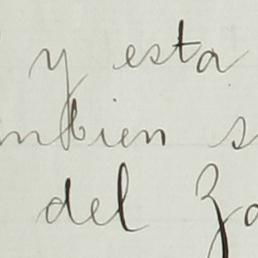 y esta
mbien s
del Za